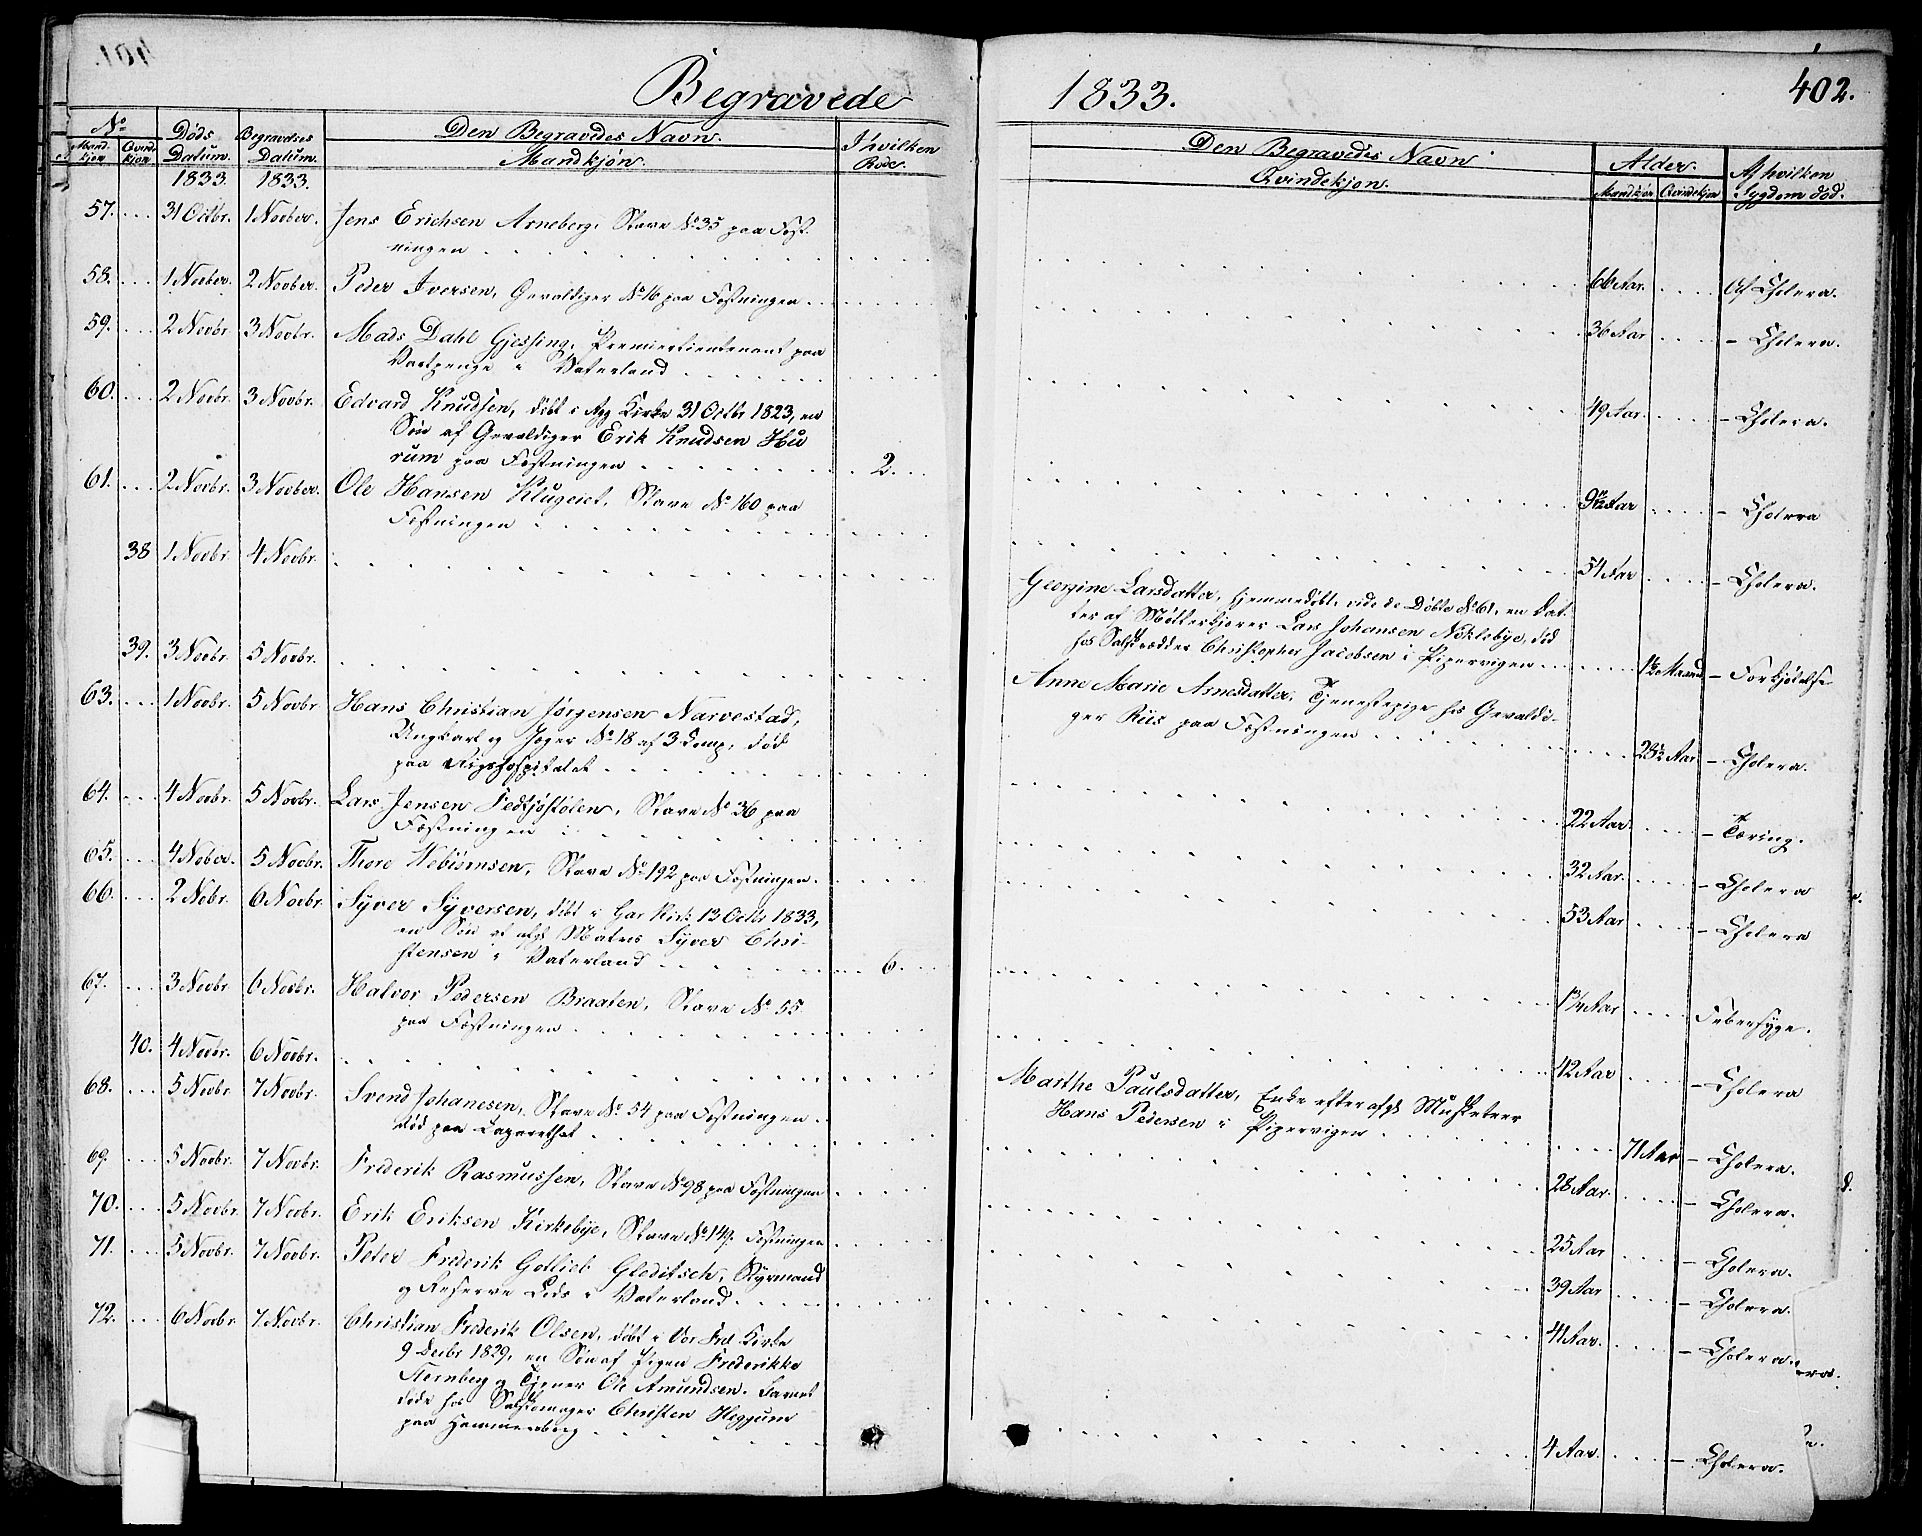 Begravede
1833.
402.
No
Mandkjøn
Qvindekjøn
Døds Datum.
Begravelses Datum.
Den Begravedes Navn.
Mandkjøn.
I hvilken Rode.
Den Begravedes Navn
Qvindekjøn.
Alder.
Mandkjøn Qvindekjøn
Af hvilken Sygdom død.
1833. 1833.
57. 31 Octbr. 1 Novber. Jens Erichsen Arneberg, Slave No 35 paa Fæst-
ningen 66 Aar. Af Cholera.
58. 1 Novber. 2 Novber. Peder Iversen, Gevaldiger No 16 paa Fæstningen 36 Aar - Cholera.
59. 2 Novbr. 3 Novbr. Mads Dahl Gjessing, Premierlieutenant paa
Vartpenge i Vaterland 49 Aar. - Cholera.
60. 2 Novbr. 3 Novbr. Edvard Knudsen, døbt i Agg Kirke 31 Octbr 1823, en
Søn af Gevaldiger Erik Knudsen Hu
rum paa Fæstningen 2. 9 11/12 Aar - Cholera
61. 2 Novbr. 3 Novber. Ole Hansen Klugeiet, Slave No 160 paa
Fæstningen 54 Aar - Cholera.
38 1 Novbr. 4 Novbr. Georgine Larsdatter, hjemmedøbt, vide de Døbte No 61, en Dat-
ter af Møllerkjører Lars Johansen Noklebye, død
hos Salskrædder Christopher Jacobsen i Pipervigen 1½ Maaned - Forkjølelse
39. 3 Novbr. 5 Novbr. Anne Marie Arnesdatter, Tjenestepige hos Gevaldi-
ger Riis paa Fæstningen 25½ Aar - Cholera.
63. 1 Novbr. 5 Novbr Hans Christian Jørgensen Narvestad,
Ungkarl og Jæger No 18 af 3 Comp, død
paa Rigshospitalet 22 Aar. - Tæring.
64. 4 Novbr. 5 Novbr. Lars Jensen Fedtjøstølen, Slave No 36 paa
Fæstningen 32 Aar. - Cholera
65. 4 Nober. 5 Novbr. Thore Webiømsen, Slave No 192 paa Fæstningen. 53 Aar - Cholera
66. 2 Nobr. 6 Novbr. Syver Syversen, døbt i Gar Kirk 13 Octbr 1833,
en Søn af afgk Matros Syver Chri-
stensen i Vaterland 6. 1¾ Aar Febersyge.
67. 3 Novbr 6 Novbr. Halvor Pedersen Braaten, Slave No 55
paa Fæstningen 42 Aar - Cholera
40. 4 Novbr. 6 Novbr. Marthe Paulsdatter, Enke efter afgk Musketeer
Hans Pedersen i Pipervigen 71 Aar - Cholera.
68. 5 Novbr 7 Novbr. Svend Johanesen, Slave No 54 paa Fæstningen
død paa Lazarethet 28 Aar. - Cholera.
69. 5 Novbr. 7 Novbr. Frederik Rasmussen, Slave No 98 paa Fæstningen 25 Aar - Cholera.
70. 5 Novbr. 7 Novbr. Erik Eriksen Kirkebye, Slave No 149. Fæstningen 39 Aar - Cholera.
71. 5 Novbr. 7 Novbr. Peter Frederik Gotlieb Gleditsch, Styrmand
og Reserve Lods i Vaterland. 41 Aar. - Cholera.
72. 6 Novbr. 7 Novbr. Christian Frederik Olsen, døbt i Vor Frel Kirke
9 Decbr 1829, en Søn af Pigen Frederikke
Sternberg og Tjener Ole Amundsen. Barnet
døde hos Salskomager Christen Heggum
paa Hammersborg 4 Aar. - Cholera.